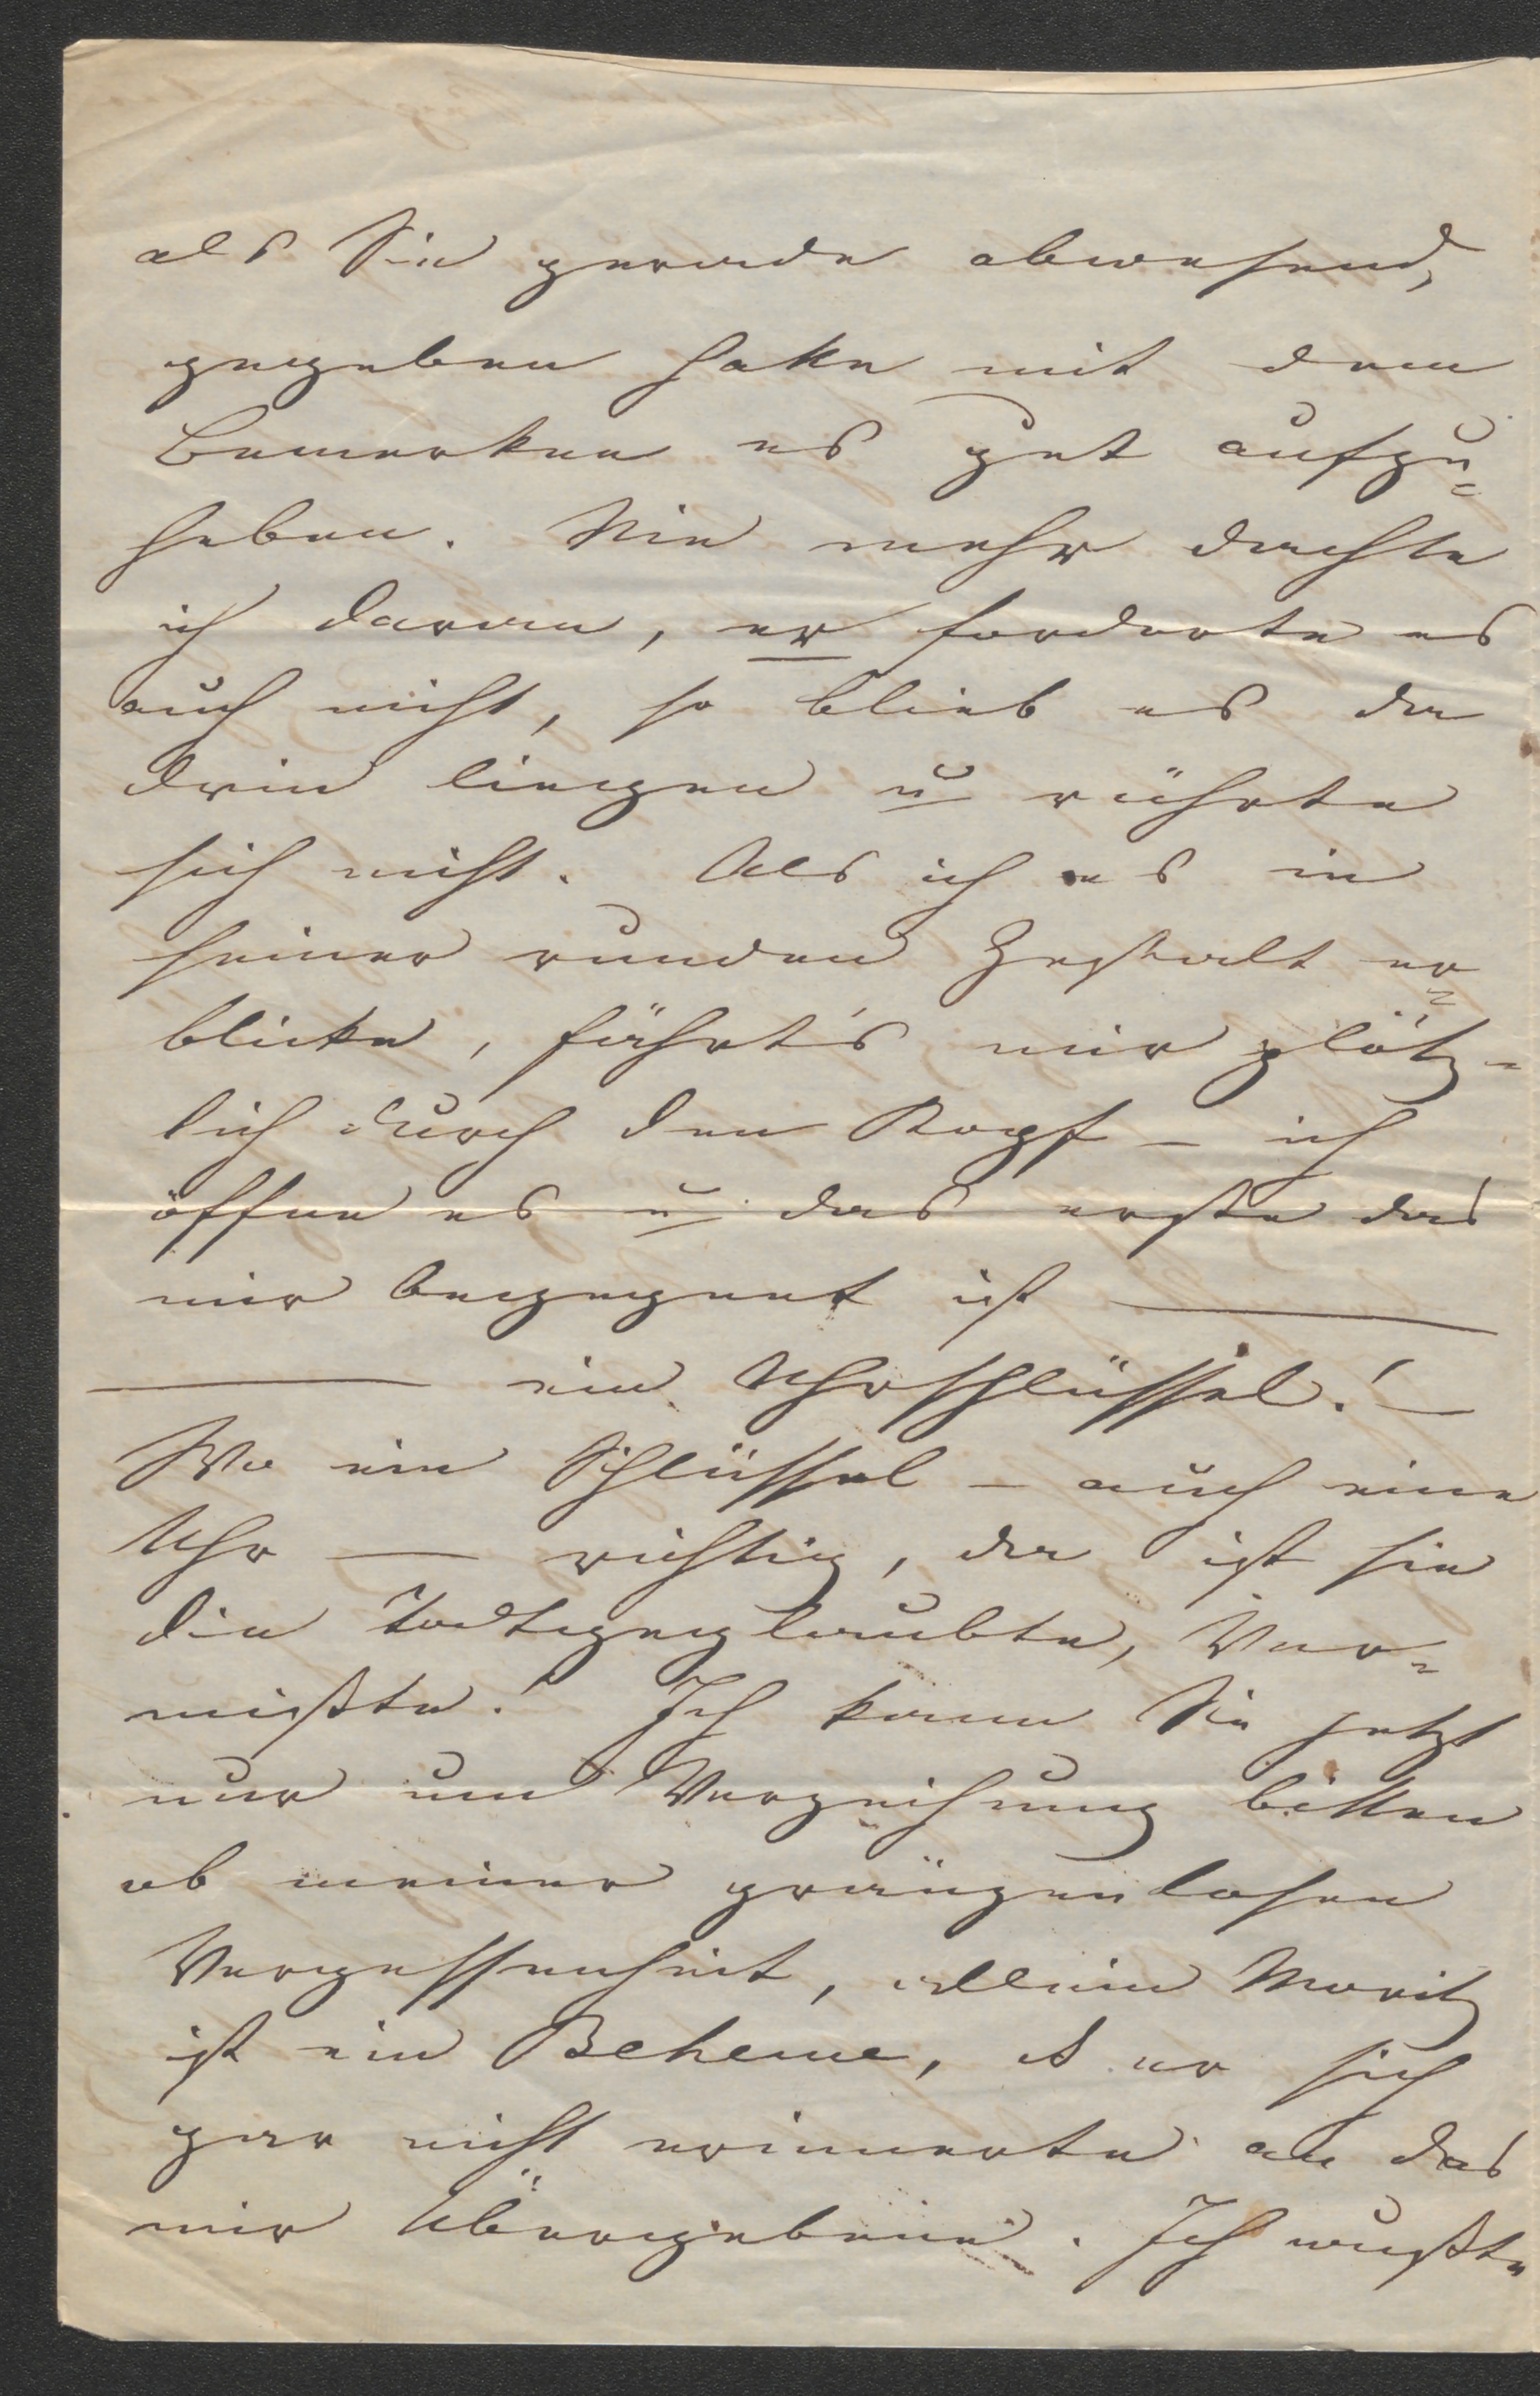 als Sie gerade abwesend,
gegeben hatte mit dem
Bemerken es gut aufzu=
heben. Nie mehr dachte
ich daran, er forderte es
auch nicht, so blieb es da
drin liegen u rührte
sich nicht. Als ich es in
seiner runden Gestalt er=
blicke, fährt's mir plötz-
lich durch den Kopf – ich
öffne es u das erste das
mir begegnet ist —
— ein Uhrschlüssel! –
Wo ein Schlüssel – auch eine
Uhr — richtig, da ist sie
die Todtgeglaubte, Ver=
mißte! Ich kann Sie jetzt
nur um Verzeihung bitten
ob meiner gränzenlosen
Vergessenheit, allein Moritz
ist ein Beheme, d er sich
gar nicht erinnerte an das
mir Übergebene. Ich wußte